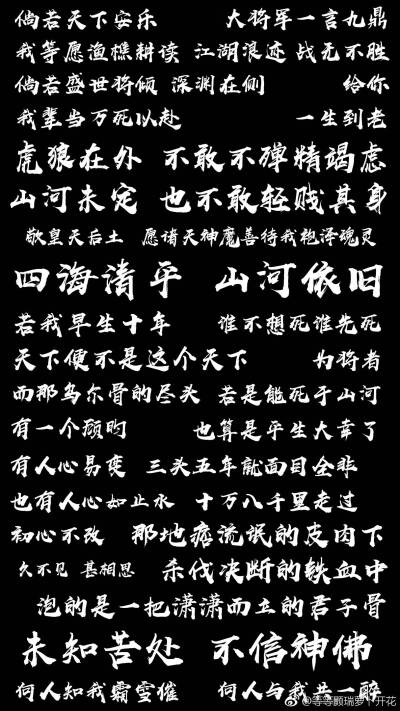 倘若天下安乐 大将军一言九鼎
我等愿渔樵耕读 江湖浪迹 战无不胜
倘若盛世将倾 深渊在侧 给你
我辈当万死以赴 一生到老
虎狼在外 不敢不殚精竭虑
山河未定 也不敢轻贱其身
敬皇天后土 愿诸天神魔善待我袍泽魂灵
四海清平 山河依旧
若我早生十年 谁不想死谁先死
天下便不是这个天下 为将者
而那乌尔骨的尽头 若是能死于山河
有一个顾昀 也算是平生大幸了
有人心易变 三头五年就面目全非
也有人心如止水 十万八千里走过
初心不改 那地痞流氓的皮肉下
久不见 甚相思 杀伐决断的铁血中
泡的是一把潇潇而立的君子骨
未知苦处 不信神佛
何人知我霜雪催 何人与我共一醉
@等等顾瑞萝卜开花